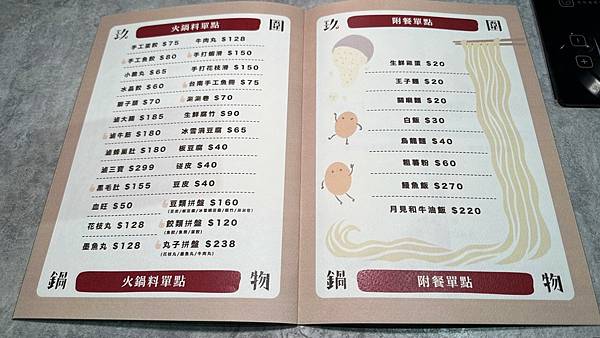 玖
火鍋料單點
圍
手工蛋餃 $75
手工魚餃 $80
小脆丸 $65
水晶餃 $60
獅子頭 $70
滷大腸 $185
滷牛筋 $180
滷蜂巢肚 $180
滷三寶 $299
黑毛肚 $155
血旺 $50
花枝丸 $128
墨魚丸 $128
牛肉丸 $128
手打蝦滑 $150
手打花枝滑 $150
台南手工魚冊 $75
涮涮卷 $70
生鮮腐竹 $90
冰雪凍豆腐 $65
板豆腐 $40
碰皮 $40
豆皮 $40
豆類拼盤 $160
餃類拼盤 $120
(魚餃/蛋餃)
丸子拼盤 $238
(花枝丸/墨魚丸/牛肉丸)
鍋
火鍋料單點
物
玖
附餐單點
圍
生鮮雞蛋 $20
王子麵 $20
關廟麵 $20
白飯 $30
烏龍麵 $40
粗薯粉 $60
鰻魚飯 $270
月見和牛油飯 $220
鍋
附餐單點
物